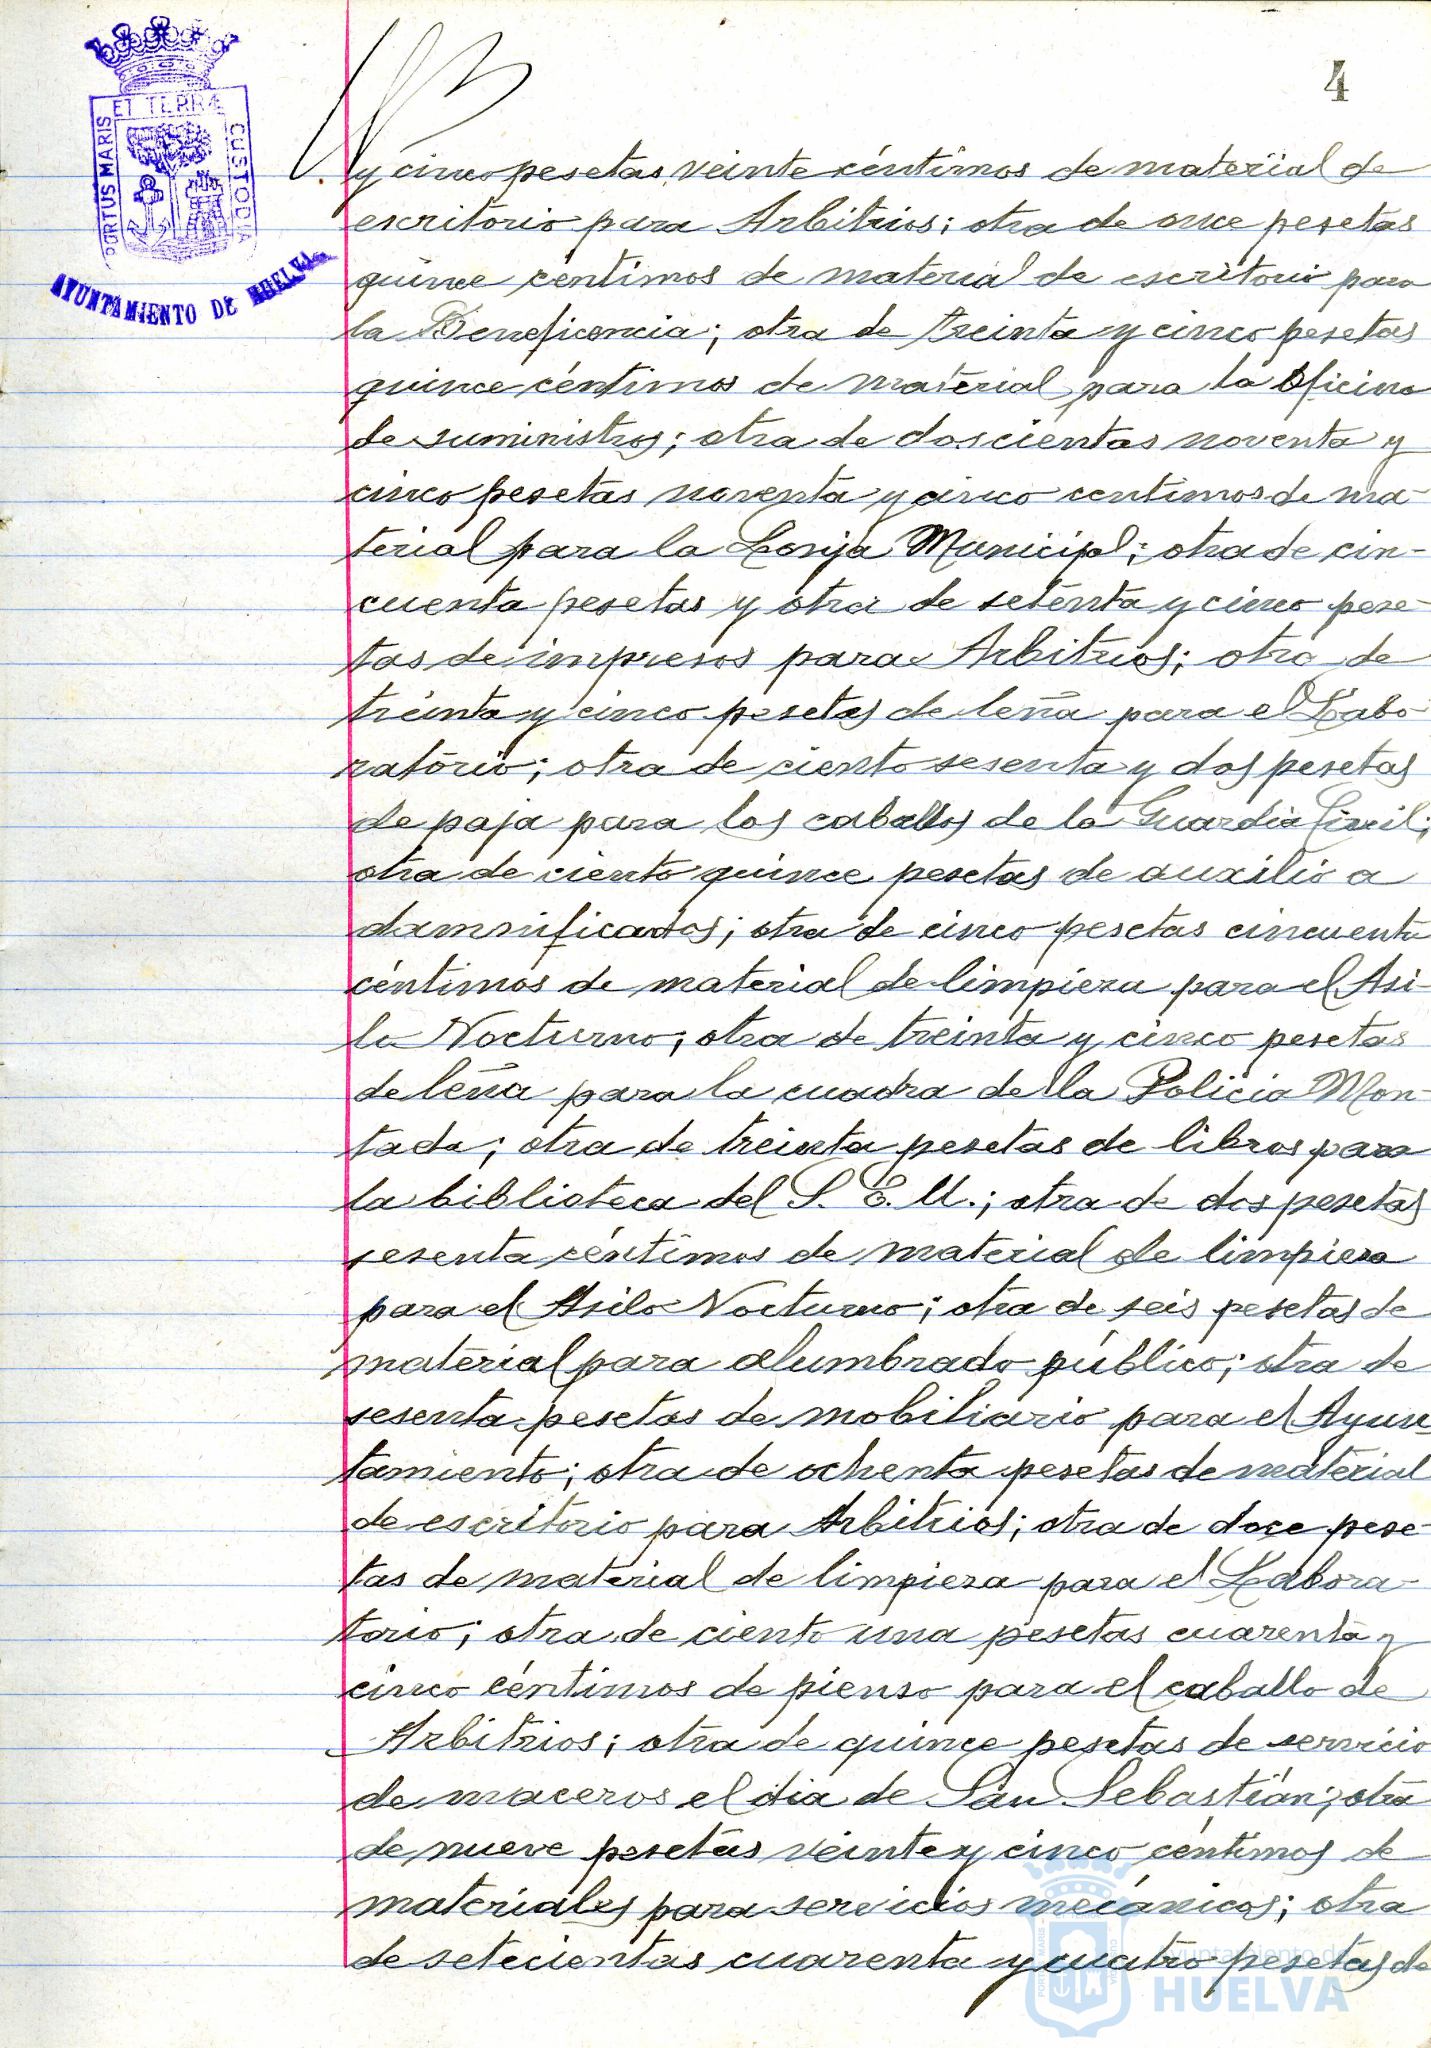 4
ET TERRÆ
PORTUS MARIS
CUSTODIA
AYUNTAMIENTO DE HUELVA
y cinco pesetas veinte céntimos de material de
escritorio para Arbitrios; otra de once pesetas
quince céntimos de material de escritorio para
la Beneficencia; otra de treinta y cinco pesetas
quince céntimos de material para la Oficina
de suministros; otra de doscientas noventa y
cinco pesetas noventa y cinco centimos de ma-
terial para la Lonja Municipal; otra de cin-
cuenta pesetas y otra de setenta y cinco pese-
tas de impresos para Arbitrios; otra de
treinta y cinco pesetas de leña para el Labo-
ratorio; otra de ciento sesenta y dos pesetas
de paja para los caballos de la Guardia Civil;
otra de ciento quince pesetas de auxilio a
damnificados; otra de cinco pesetas cincuenta
céntimos de material de limpieza para el Asi-
lo Nocturno; otra de treinta y cinco pesetas
de leña para la cuadra de la Policia Mon-
tada; otra de treinta pesetas de libros para
la biblioteca del S. E. U.; otra de dos pesetas
sesenta céntimos de material de limpieza
para el Asilo Nocturno; otra de seis pesetas de
material para alumbrado público; otra de
sesenta pesetas de mobiliario para el Ayun-
tamiento; otra de ochenta pesetas de material
de escritorio para Arbitrios; otra de doce pese-
tas de material de limpieza para el Labora-
torio; otra de ciento una pesetas cuarenta y
cinco céntimos de pienso para el caballo de
Arbitrios; otra de quince pesetas de servicio
de maceros el dia de San Sebastián; otra
de nueve pesetas veinte y cinco céntimos de
materiales para servicios mecánicos; otra
de setecientas cuarenta y cuatro pesetas de
Ayuntamiento de
HUELVA